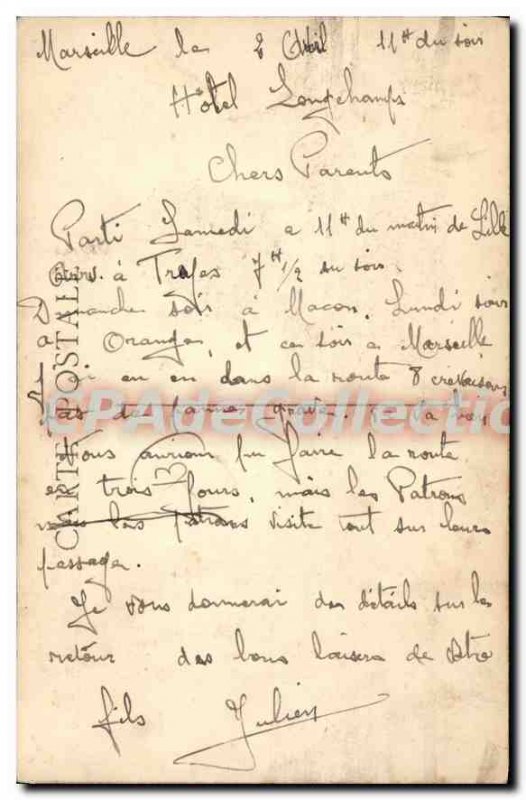 Marseille le 2 Avril 11H du soir
Hôtel Longchamps
Chers Parents
Parti Samedi a 11H du matin de Lille
à Troyes 7H 1/2 du soir.
Dimanche soir à Macon. Lundi soir
a Orange, et ce soir a Marseille
en dans la route 8 crevaisons
pas de pannes grave.
Nous aurions pu faire la route
en trois Jours, mais les Patrons
visite tout sur leurs
passage.
Je vous donnerai des détails sur le
retour des bons baisers de votre
fils Julien
CARTE POSTALE
CPADeCollection